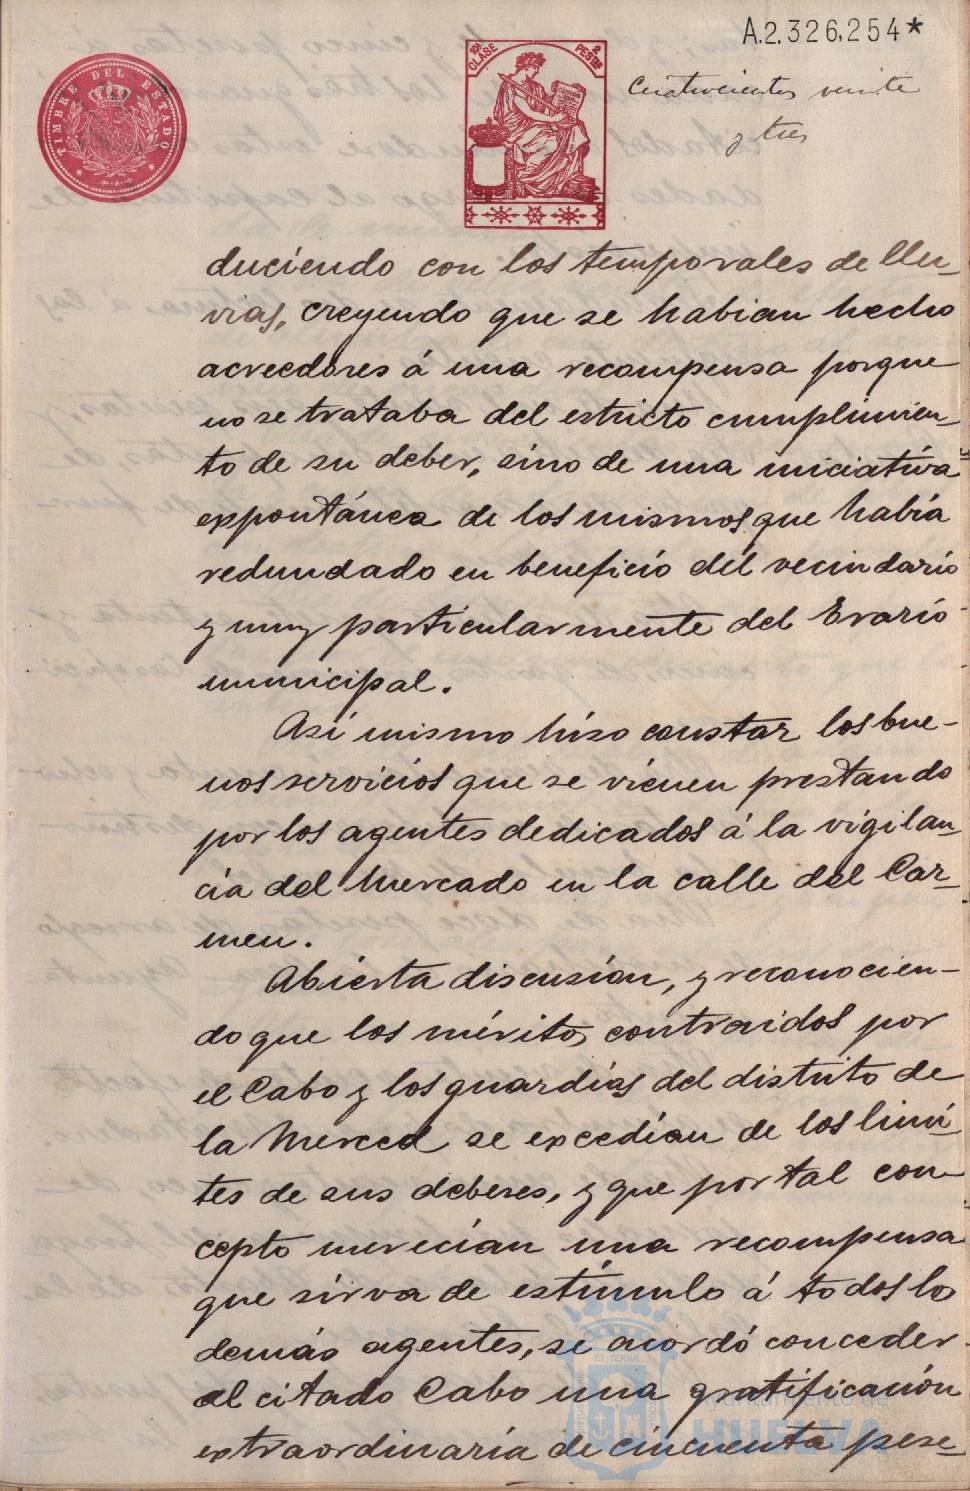 A.2.326,254*
TIMBRE DEL ESTADO
10ª CLASE
2 PESTAS
Cuatrocientos veinte
y tres
duciendo con los temporales de llu-
vias, creyendo que se habian hecho
acreedores á una recompensa porque
no se trataba del estricto cumplimien-
to de su deber, sino de una iniciativa
expontánea de los mismos que había
redundado en beneficio del vecindario
y muy particularmente del Erario
municipal.
Asi mismo hizo constar los bue-
nos servicios que se vienen prestando
por los agentes dedicados á la vigilan-
cia del Mercado en la calle del Car-
men.
Abierta discusion, y reconocien-
do que los méritos contraidos por
el Cabo y los guardias del distrito de
la Merced se excedian de los limi-
tes de sus deberes, y que por tal con-
cepto merecian una recompensa
que sirva de estímulo á todos lo
demás agentes, se acordó conceder
al citado Cabo una gratificación
extraordinaria de cincuenta pese-
Ayuntamiento de
HUELVA